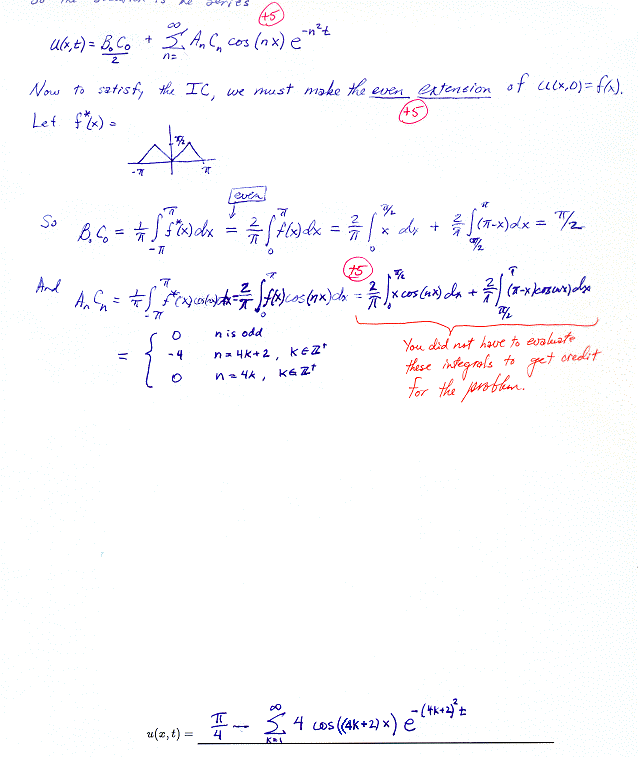 So the solution is the series
+5
u(x,t) = B₀C₀/2 + ∑_{n=}^{∞} AₙCₙ cos(nx) e^{-n²t}
Now to satisfy the IC, we must make the even extension of u(x,0)=f(x).
+5
Let f*(x) =
π/2
-π π
even
So B₀C₀ = 1/π ∫_{-π}^{π} f*(x)dx = 2/π ∫_0^{π} f(x)dx = 2/π ∫_0^{π/2} x dx + 2/π ∫_{π/2}^{π} (π-x)dx = π/2
+5
And AₙCₙ = 1/π ∫_{-π}^{π} f*(x)cos(nx)dx = 2/π ∫_0^{π} f(x)cos(nx)dx = 2/π ∫_0^{π/2} x cos(nx)dx + 2/π ∫_{π/2}^{π} (π-x)cos(nx)dx
= { 0 n is odd
-4 n=4k+2, k∈ℤ⁺
0 n=4k, k∈ℤ⁺
You did not have to evaluate
these integrals to get credit
for the problem.
u(x,t) = π/4 - ∑_{k=1}^{∞} 4 cos((4k+2)x) e^{-(4k+2)²t}